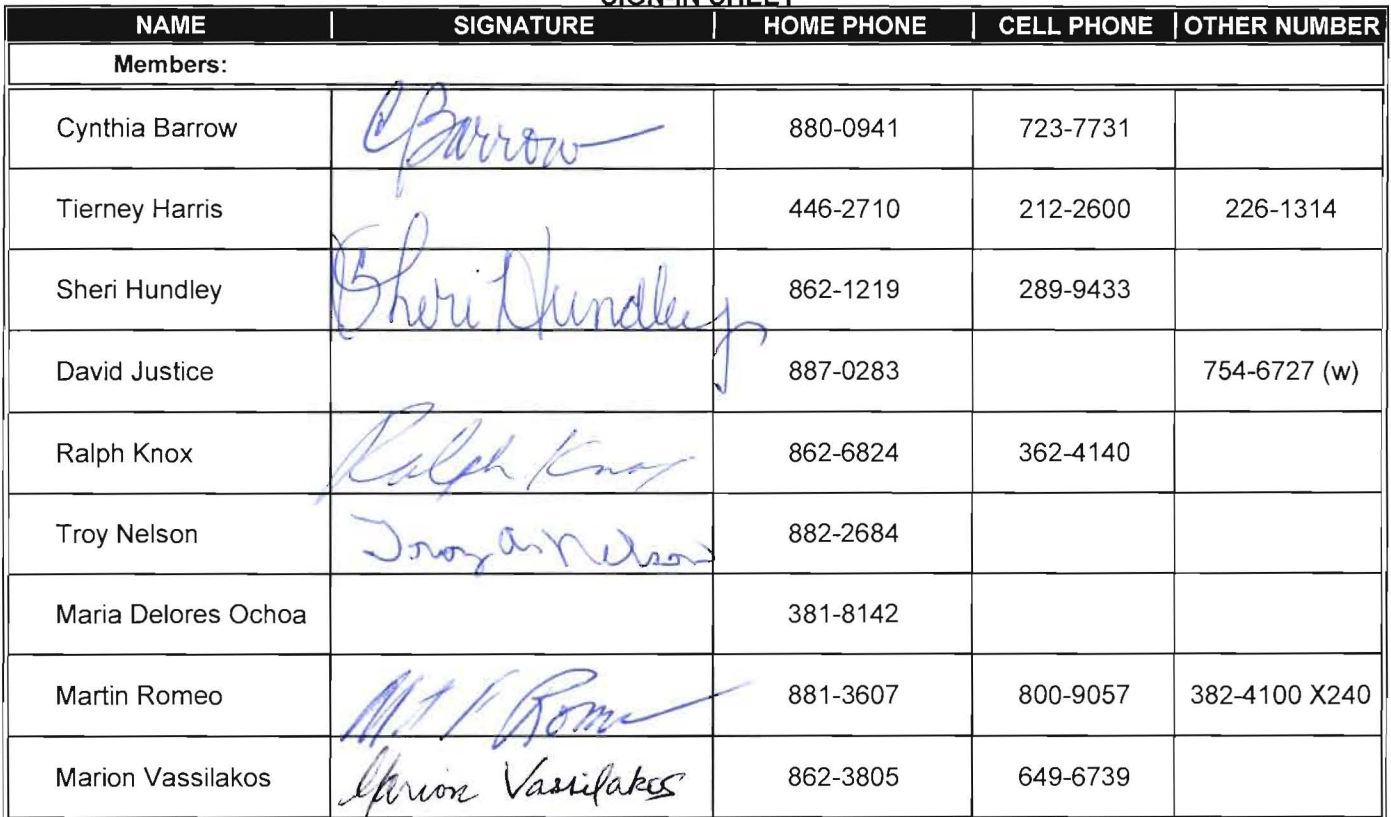 SIGN-IN SHEET
NAME SIGNATURE HOME PHONE CELL PHONE OTHER NUMBER
Members:
Cynthia Barrow CBarrow 880-0941 723-7731
Tierney Harris 446-2710 212-2600 226-1314
Sheri Hundley Sheri Hundley 862-1219 289-9433
David Justice 887-0283 754-6727 (w)
Ralph Knox Ralph Knox 862-6824 362-4140
Troy Nelson Troy A. Nelson 882-2684
Maria Delores Ochoa 381-8142
Martin Romeo 881-3607 800-9057 382-4100 X240
Marion Vassilakos Marion Vassilakos 862-3805 649-6739